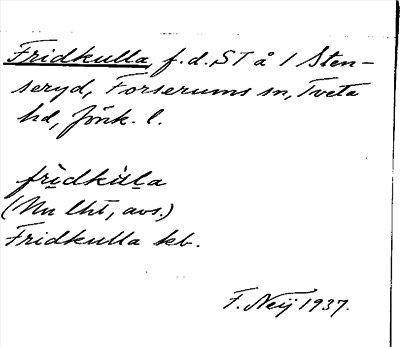 Fridkulla, f.d. ST å 1 Sten-
seryd, Forserums sn, Tveta
hd, Jönk. l.
fridkula
(Nu lht, avs.)
Fridkulla kb.
F. Neij 1937.